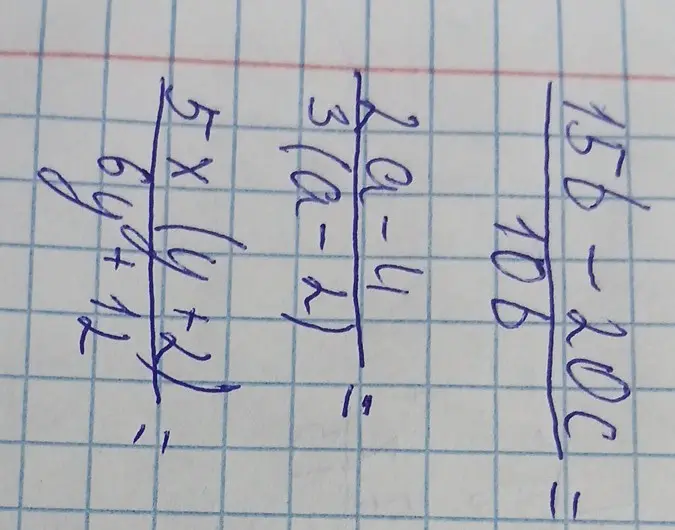 15b - 20c
10b
=
2a - 4
3(a - 2)
=
5x(y + 2)
6y + 12
=